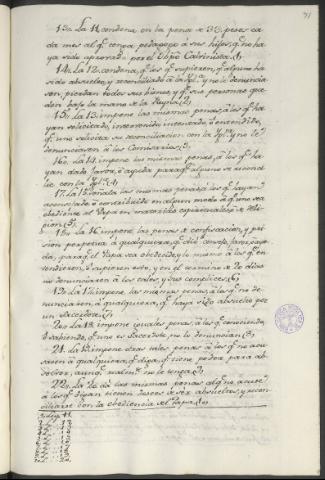 13. La 11. condena en la pena de 33. pesos ca
da mes al q.e tenga pedagogo a sus hijos, q.e no ha
ya sido aprobado por el Obpo Calvinista. (1)
14. La 12. condena q.e los q.e supieren, q.e alguno ha
sido absuelto, y reconciliado a la Igl.a y no le denuncia
sen, pierdan todos sus bienes, y q.e sus personas que
den bajo la mano de la Reyna. (2)
15. La 13. impone las mismas penas, a los q.e ha
yan solicitado, intervenido o entendido,
q.e uno solicita su reconciliacion con la Igl.a y no le
denunciaren a los Comisarios. (3)
16. La 14. impone las mismas penas, a los q.e ha
yan dado favor, o ayuda para q.e alguno se reconci
lie con la Igl.a (4)
17. La 15. señala las mismas penas a los q.e hayan
aconsejado o contribuido en algun modo a q.e uno sea
obediente al Papa en materias espirituales, o de reli
gion. (5)
18. La 16. impone las penas de confiscacion, y pri
sion perpetua a qualquiera, q.e dio consejo, favor, o ayu
da, para q.e el Papa sea obedecido, lo mismo a los q.e en
tendieren, o supieren esto, y en el termino de 20 dias
no denunciaren a los tales, y sus complices. (6)
19. La 17. impone las mismas penas, a los q.e no de
nunciaren, a qualquiera, q.e haya sido absuelto por
un Sacerdote. (7)
20. La 18. impone iguales penas, a los q.e conociendo,
o sabiendo, q.e uno es Sacerdote, no lo denuncian. (8)
21. La 19. impone otras tales penas, a los q.e no acu
saren a qualquiera, q.e diga, q.e tiene poder para ab
solver, aunq.e realm.te no le tenga. (9)
22. La 20. da las mismas penas al q.e no acuse
a los q.e digan tienen deseos de ser absueltos, y recon
ciliarse con la obediencia del Papa. (10)